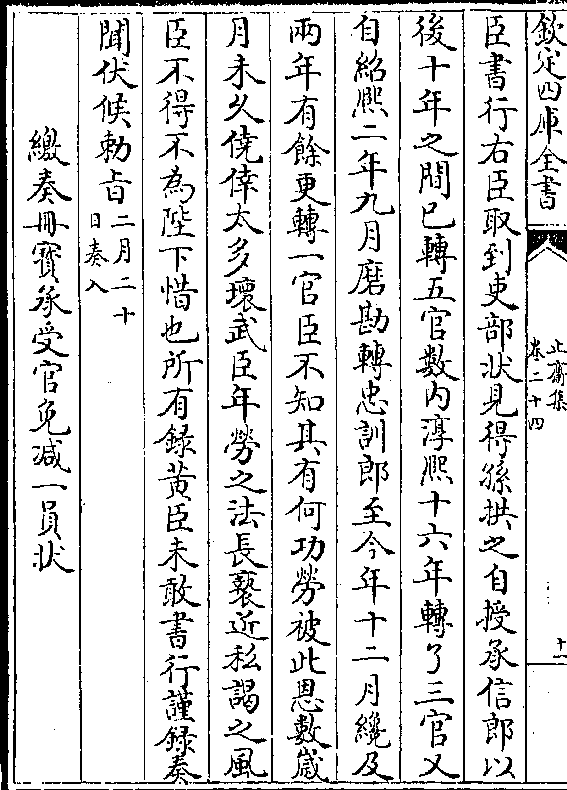 欽定四庫全書
止齋集
卷二十四
十一
臣書行右臣取到吏部狀見得孫拱之自授承信郎以
後十年之間已轉五官數內淳熙十六年轉了三官又
自紹熙二年九月磨勘轉忠訓郎至今年十二月纔及
兩年有餘更轉一官臣不知其有何功勞被此恩數歲
月未久僥倖太多壞武臣年勞之法長褻近私謁之風
臣不得不為陛下惜也所有録黃臣未敢書行謹録奏
聞伏候勅旨二月二十
日奏入
繳奏冊寳承受官免減一員狀